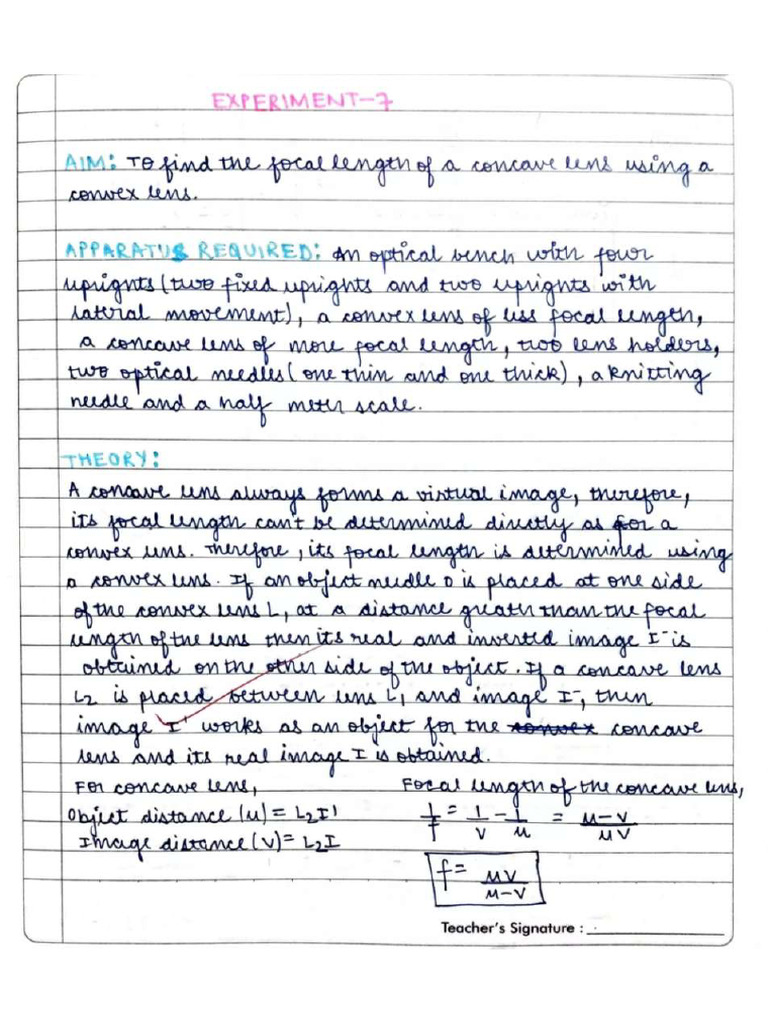 EXPERIMENT-7
AIM: To find the focal length of a concave lens using a
convex lens.
APPARATUS REQUIRED: An optical bench with four
uprights (two fixed uprights and two uprights with
lateral movement), a convex lens of less focal length,
a concave lens of more focal length, two lens holders,
two optical needles (one thin and one thick), a knitting
needle and a half meter scale.
THEORY:
A concave lens always forms a virtual image, therefore,
its focal length can't be determined directly as for a
convex lens. Therefore, its focal length is determined using
a convex lens. If an object needle O is placed at one side
of the convex lens L, at a distance greath than the focal
length of the lens then its real and inverted image I' is
obtained on the other side of the object. If a concave lens
L2 is placed between lens L1 and image I', then
image I' works as an object for the convex concave
lens and its real image I is obtained.
For concave lens, Focal length of the concave lens,
Object distance (u) = L2I' 1/f = 1/v - 1/u = u-v/uv
Image distance (v) = L2I
f = uv/u-v
Teacher's Signature :